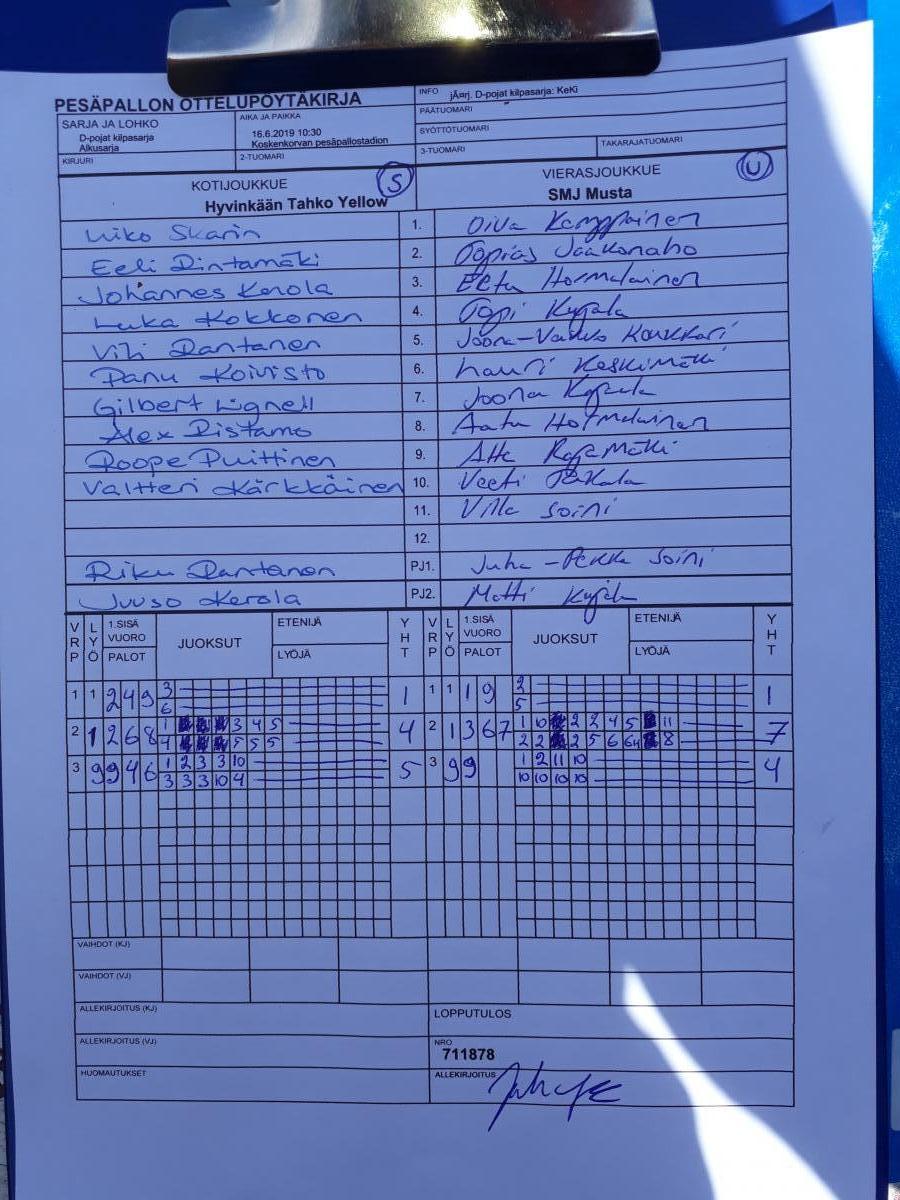 PESÄPALLON OTTELUPÖYTÄKIRJA
INFO jÃ¤rj. D-pojat kilpasarja: KeKi
PÄÄTUOMARI
SARJA JA LOHKO
D-pojat kilpasarja
Alkusarja
AIKA JA PAIKKA
16.6.2019 10:30
Koskenkorvan pesäpallostadion
SYÖTTÖTUOMARI
KIRJURI
2-TUOMARI
3-TUOMARI
TAKARAJATUOMARI
KOTIJOUKKUE S
Hyvinkään Tahko Yellow
VIERASJOUKKUE U
SMJ Musta
Miko Skarin 1. Oiva Kemppainen
Eeli Rintamäki 2. Topias Jaakonaho
Johannes Kerola 3. Eetu Hormalainen
Luka Kokkonen 4. Topi Kujala
Vili Rantanen 5. Joona-Veikko Korkkari
Panu Koivisto 6. Lauri Keskimäki
Gilbert Lignell 7. Joona
Alex Ristamo 8. Aatu Hormalainen
Roope Puittinen 9. Atte Rajamäki
Valtteri Kärkkäinen 10. Veeti
11. Ville Soini
12.
Riku Rantanen PJ1. Juha-Pekka Soini
Juuso Kerola PJ2. Matti Kujala
VRP LYÖ 1.SISÄ VUORO PALOT JUOKSUT ETENIJÄ LYÖJÄ YHT VRP LYÖ 1.SISÄ VUORO PALOT JUOKSUT ETENIJÄ LYÖJÄ YHT
1 1 2 4 9 3 1 1 1 1 9 2 1
6 5
2 1 2 6 8 1 3 4 5 4 2 1 3 6 7 1 10 2 2 4 5 11 7
4 5 5 5 2 2 2 5 6 6 8
3 9 9 4 6 1 2 3 3 10 5 3 9 9 1 2 11 10 4
3 3 3 10 4 10 10 10 10
VAIHDOT (KJ)
VAIHDOT (VJ)
ALLEKIRJOITUS (KJ)
LOPPUTULOS
ALLEKIRJOITUS (VJ)
NRO
711878
HUOMAUTUKSET
ALLEKIRJOITUS